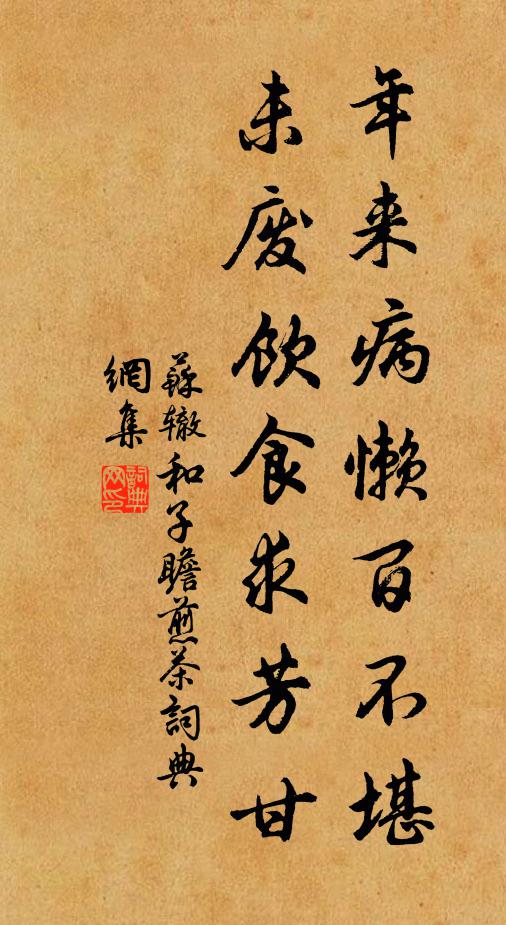 年来病懒百不堪
未废饮食求芳甘
蘇辙和子瞻煎茶詞典
網集
詞典網印